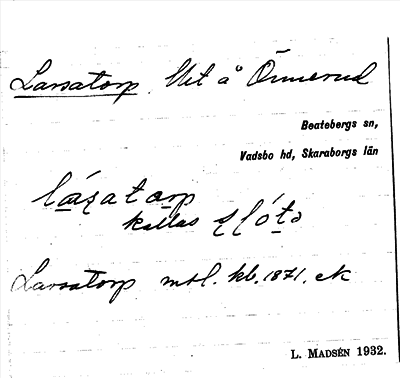 Larsatorp. Ut å Örnerud
Beatebergs sn,
Vadsbo hd, Skaraborgs län
kallas
Larsatorp mtl. kb. 1871. ek
L. MADSÉN 1932.